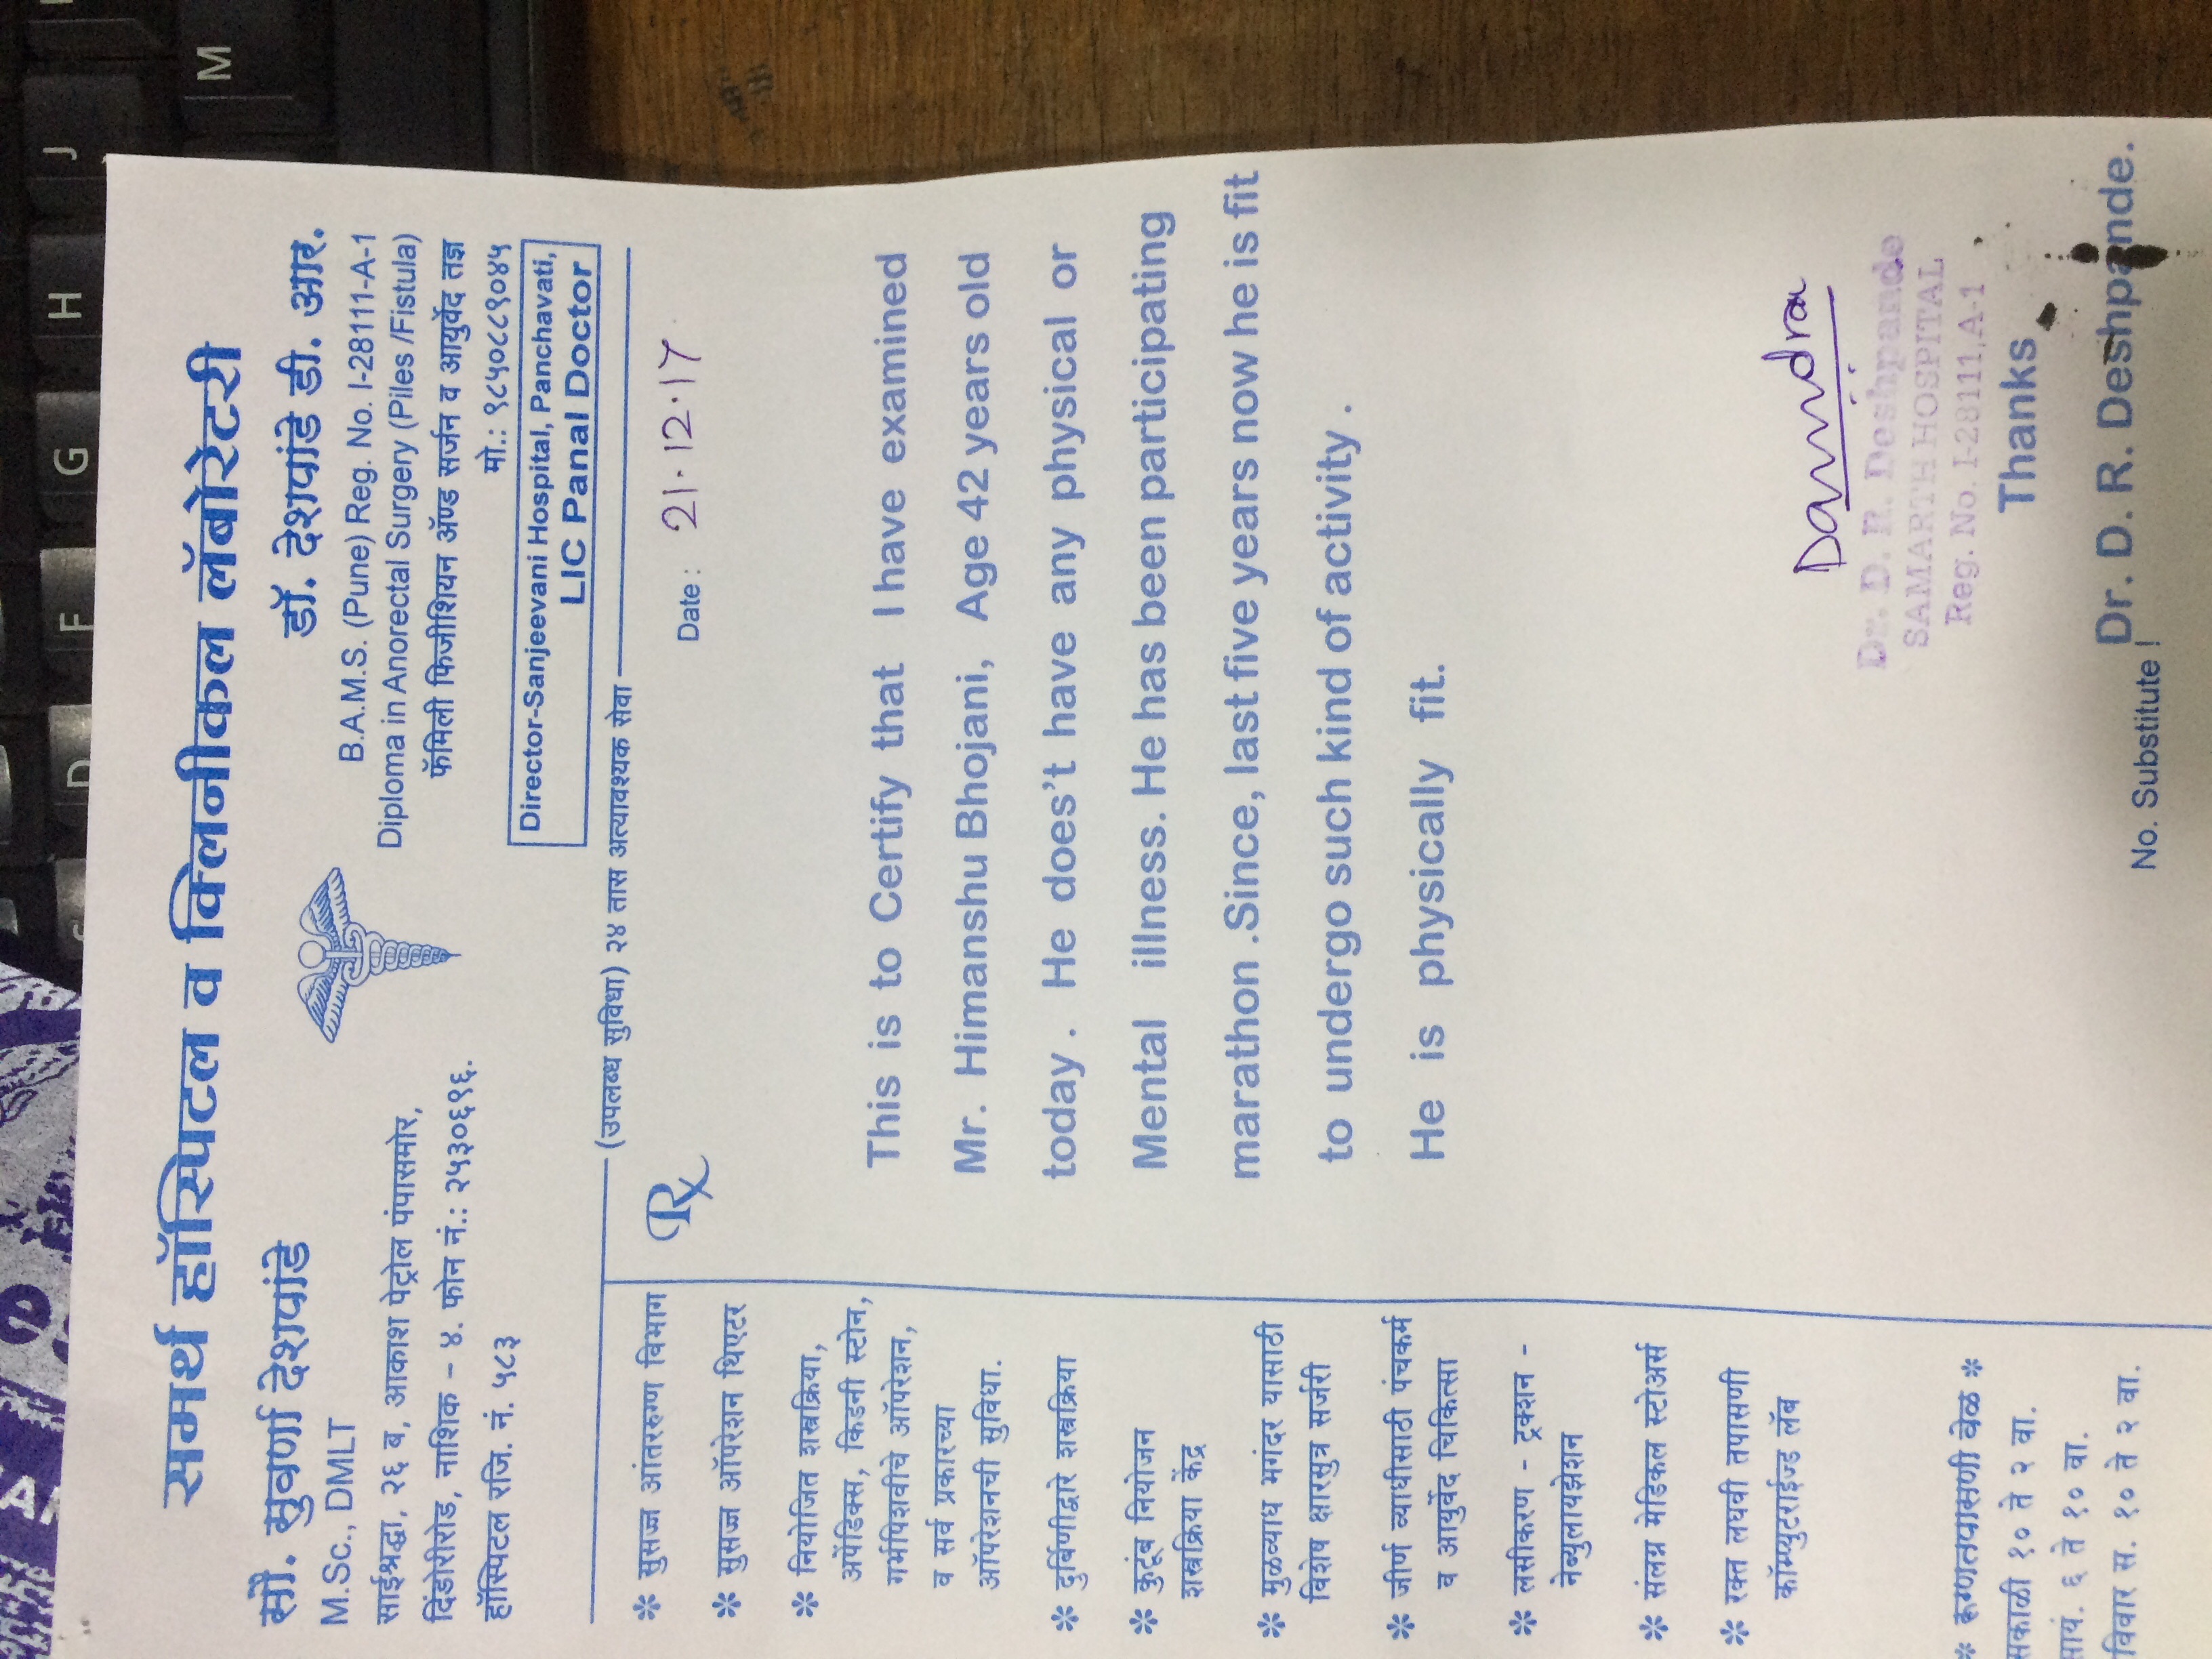 समर्थ हॉस्पिटल व क्लिनीकल लॅबोरेटरी
सौ. सुवर्णा देशपांडे
M.Sc., DMLT
साईश्रद्धा, २६ ब, आकाश पेट्रोल पंपासमोर,
दिंडोरीरोड, नाशिक - ४. फोन नं.: २५३०६९६.
हॉस्पिटल रजि. नं. ५८३
डॉ. देशपांडे डी. आर.
B.A.M.S. (Pune) Reg. No. I-28111-A-1
Diploma in Anorectal Surgery (Piles /Fistula)
फॅमिली फिजीशियन ॲण्ड सर्जन व आयुर्वेद तज्ञ
मो.: ९८५०८८९०४५
Director-Sanjeevani Hospital, Panchavati,
LIC Panal Doctor
(उपलब्ध सुविधा) २४ तास अत्यावश्यक सेवा
* सुसज्ज आंतररुग्ण विभाग
* सुसज्ज ऑपरेशन थिएटर
* नियोजित शस्त्रक्रिया,
अपेंडिक्स, किडनी स्टोन,
गर्भपिशवीचे ऑपरेशन,
व सर्व प्रकारच्या
ऑपरेशनची सुविधा.
* दुर्बिणीद्वारे शस्त्रक्रिया
* कुटूंब नियोजन
शस्त्रक्रिया केंद्र
* मुळव्याध भगंदर यासाठी
विशेष क्षारसुत्र सर्जरी
* जीर्ण व्याधीसाठी पंचकर्म
व आयुर्वेद चिकित्सा
* लसीकरण - ट्रक्शन -
नेब्युलायझेशन
* संलग्न मेडिकल स्टोअर्स
* रक्त लघवी तपासणी
कॉम्प्युटराईज्ड लॅब
* रुग्णतपासणी वेळ *
सकाळी १० ते २ वा.
सायं. ६ ते १० वा.
रविवार स. १० ते २ वा.
Rx
Date : 21.12.17
This is to Certify that I have examined
Mr. Himanshu Bhojani, Age 42 years old
today . He does't have any physical or
Mental illness. He has been participating
marathon .Since, last five years now he is fit
to undergo such kind of activity .
He is physically fit.
Dr. D. R. Deshpande
SAMARTH HOSPITAL
Reg. No. I-28111,A-1
Thanks
Dr. D. R. Deshpande.
No. Substitute !